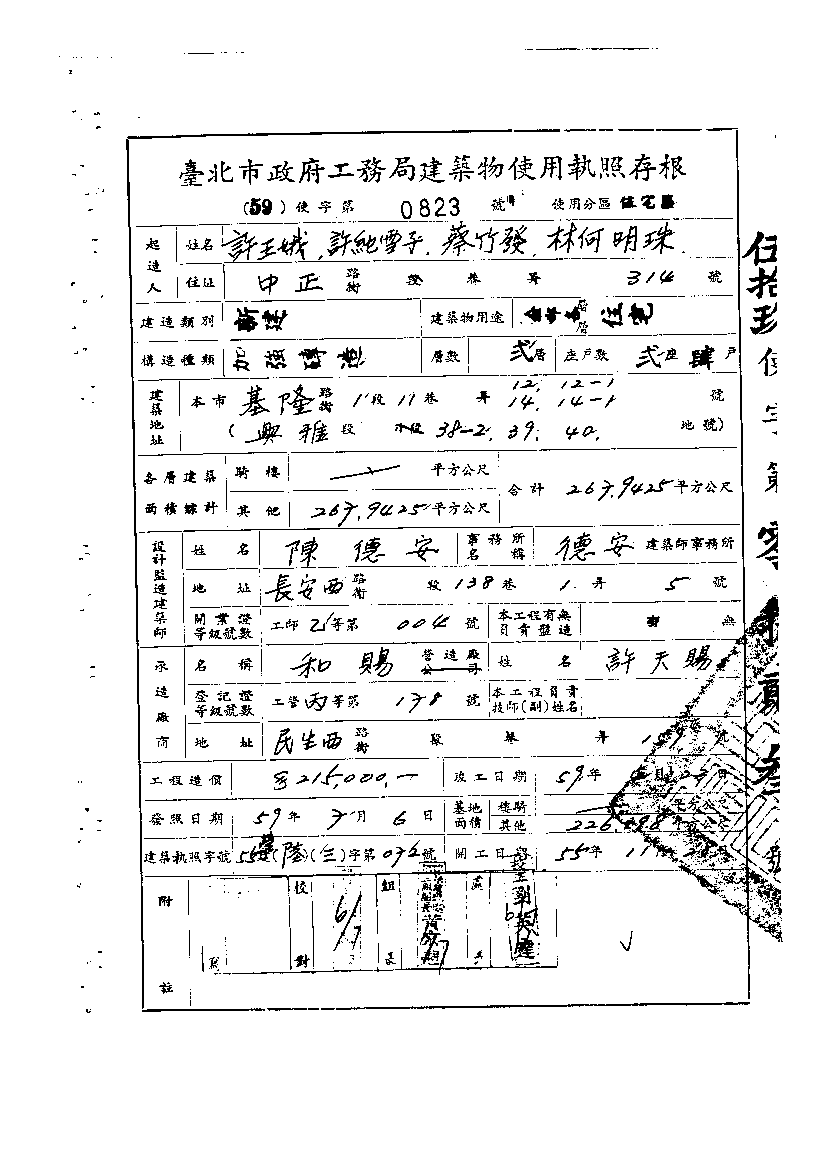 臺北市政府工務局建築物使用執照存根
(59)使字第 0823 號 使用分區 住宅區
起造人 姓名 許王娥、許純雪子、蔡竹發、林何明珠
住址 中正 路街 段 巷 弄 314 號
建造類別 新建 建築物用途 層層 住宅
構造種類 加強磚造 層數 弍層 座戶數 弍座肆戶
建築地址 本市 基隆 路街 1段 11巷 弄 12. 12-1 14. 14-1 號
(興雅段 小段 38-2. 39. 40. 地號)
各層建築面積總計 騎樓 平方公尺 合計 267.9425平方公尺
其他 267.9425平方公尺
設計監造建築師 姓名 陳德安 事務所名稱 德安 建築師事務所
地址 長安西 路街 段 138巷 1弄 5號
開業證等級號數 工師乙等第 004 號 本工程有無負責監造 有 無
承造廠商 名稱 和賜 營造廠公司 姓名 許天賜
登記證等級號數 工營丙等第 178 號 本工程負責技師(副)姓名
地址 民生西 路街 段 巷 弄 號
工程造價 215,000.— 竣工日期 59年 月 日
發照日期 59年 7月 6日 基地面積 騎樓 平方公尺
其他 平方公尺
建築執照字號 (陸)(三)字第072號 開工日期 55年 11月 日
附註 校對 6/7 組長 處長
伍拾玖使字第零捌貳叁號